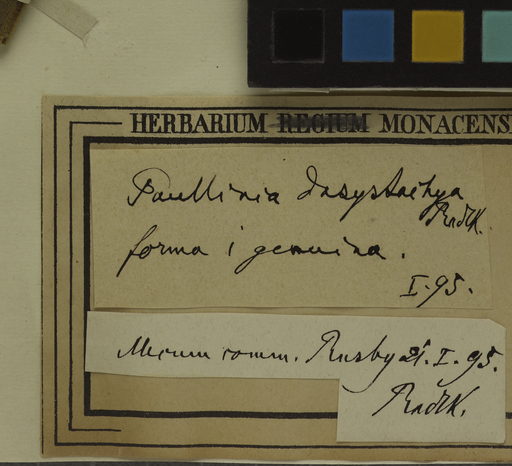 HERBARIUM REGIUM MONACENS
Paullinia dasystachya
Radlk.
forma 1 genuina.
I.95.
Mecum comm. Rusby 21. I. 95.
Radlk.